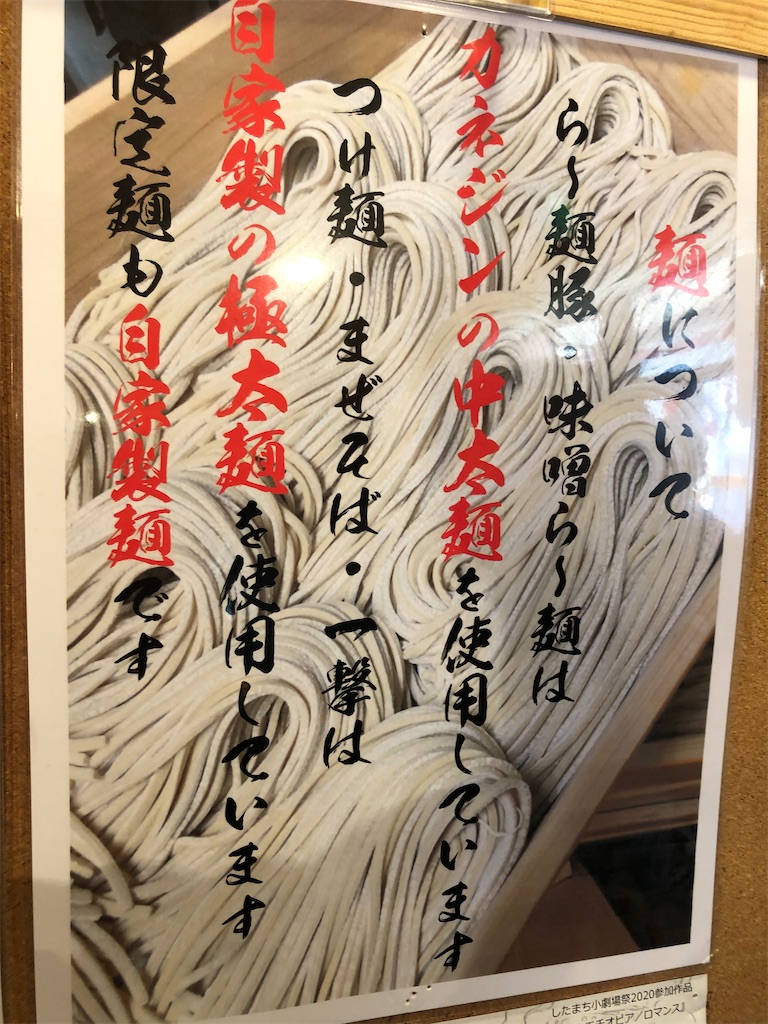 麺について
ら~麺豚・味噌ら~麺は
カネジンの中太麺を使用しています
つけ麺・まぜそば・一撃は
自家製の極太麺を使用しています
限定麺も自家製麺です
したまち小劇場祭2020参加作品
チオピアノロマンス』